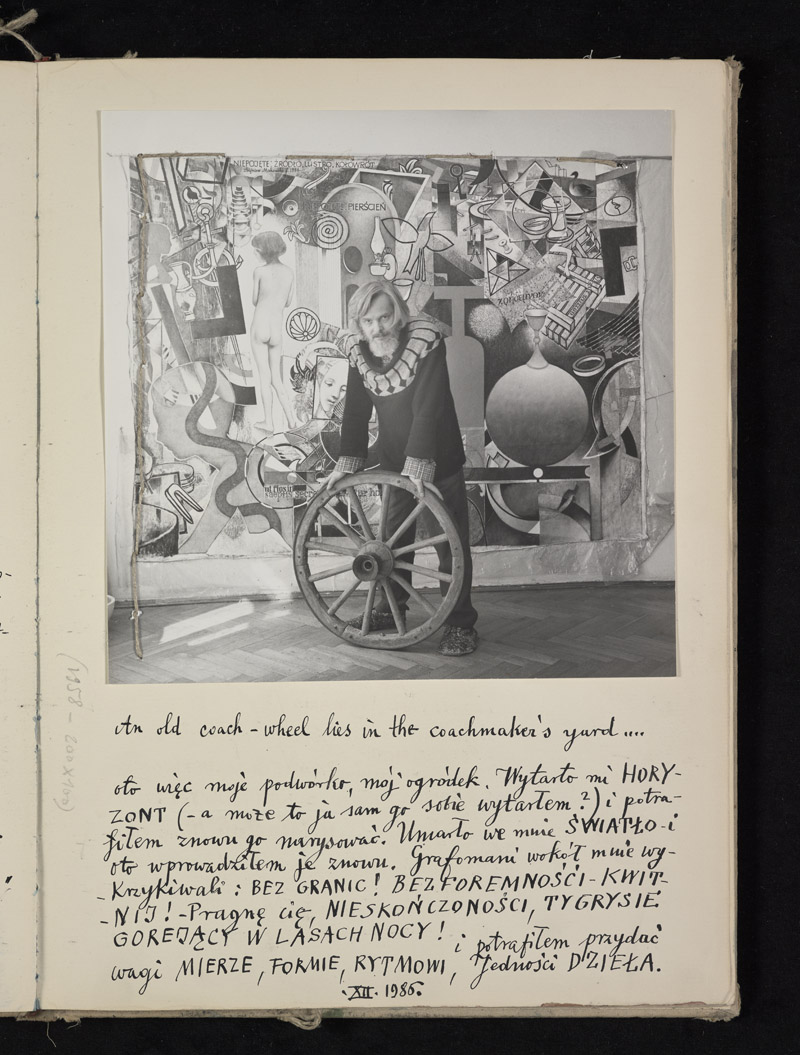 NIEPOJĘTE, ŹRÓDŁO, LUSTRO, KOŁOWRÓT
PIERŚCIEŃ
An old coach-wheel lies in the coachmaker's yard ....
oto więc moje podwórko, mój ogródek. Wytarto mi HORY-
ZONT (-a może to ja sam go sobie wytarłem?) i potra-
fiłem znowu go narysować. Umarło we mnie ŚWIATŁO-i
oto wprowadziłem je znowu. Grafomani wokół mnie wy-
-krzykiwali: BEZ GRANIC! BEZFOREMNOŚCI-KWIT-
-NIJ!-Pragnę cię, NIESKOŃCZONOŚCI, TYGRYSIE
GOREJĄCY W LASACH NOCY! i potrafiłem przydać
wagi MIERZE, FORMIE, RYTMOWI, Jedności DZIEŁA.
.XII. 1986.
(1958 - 200x400)